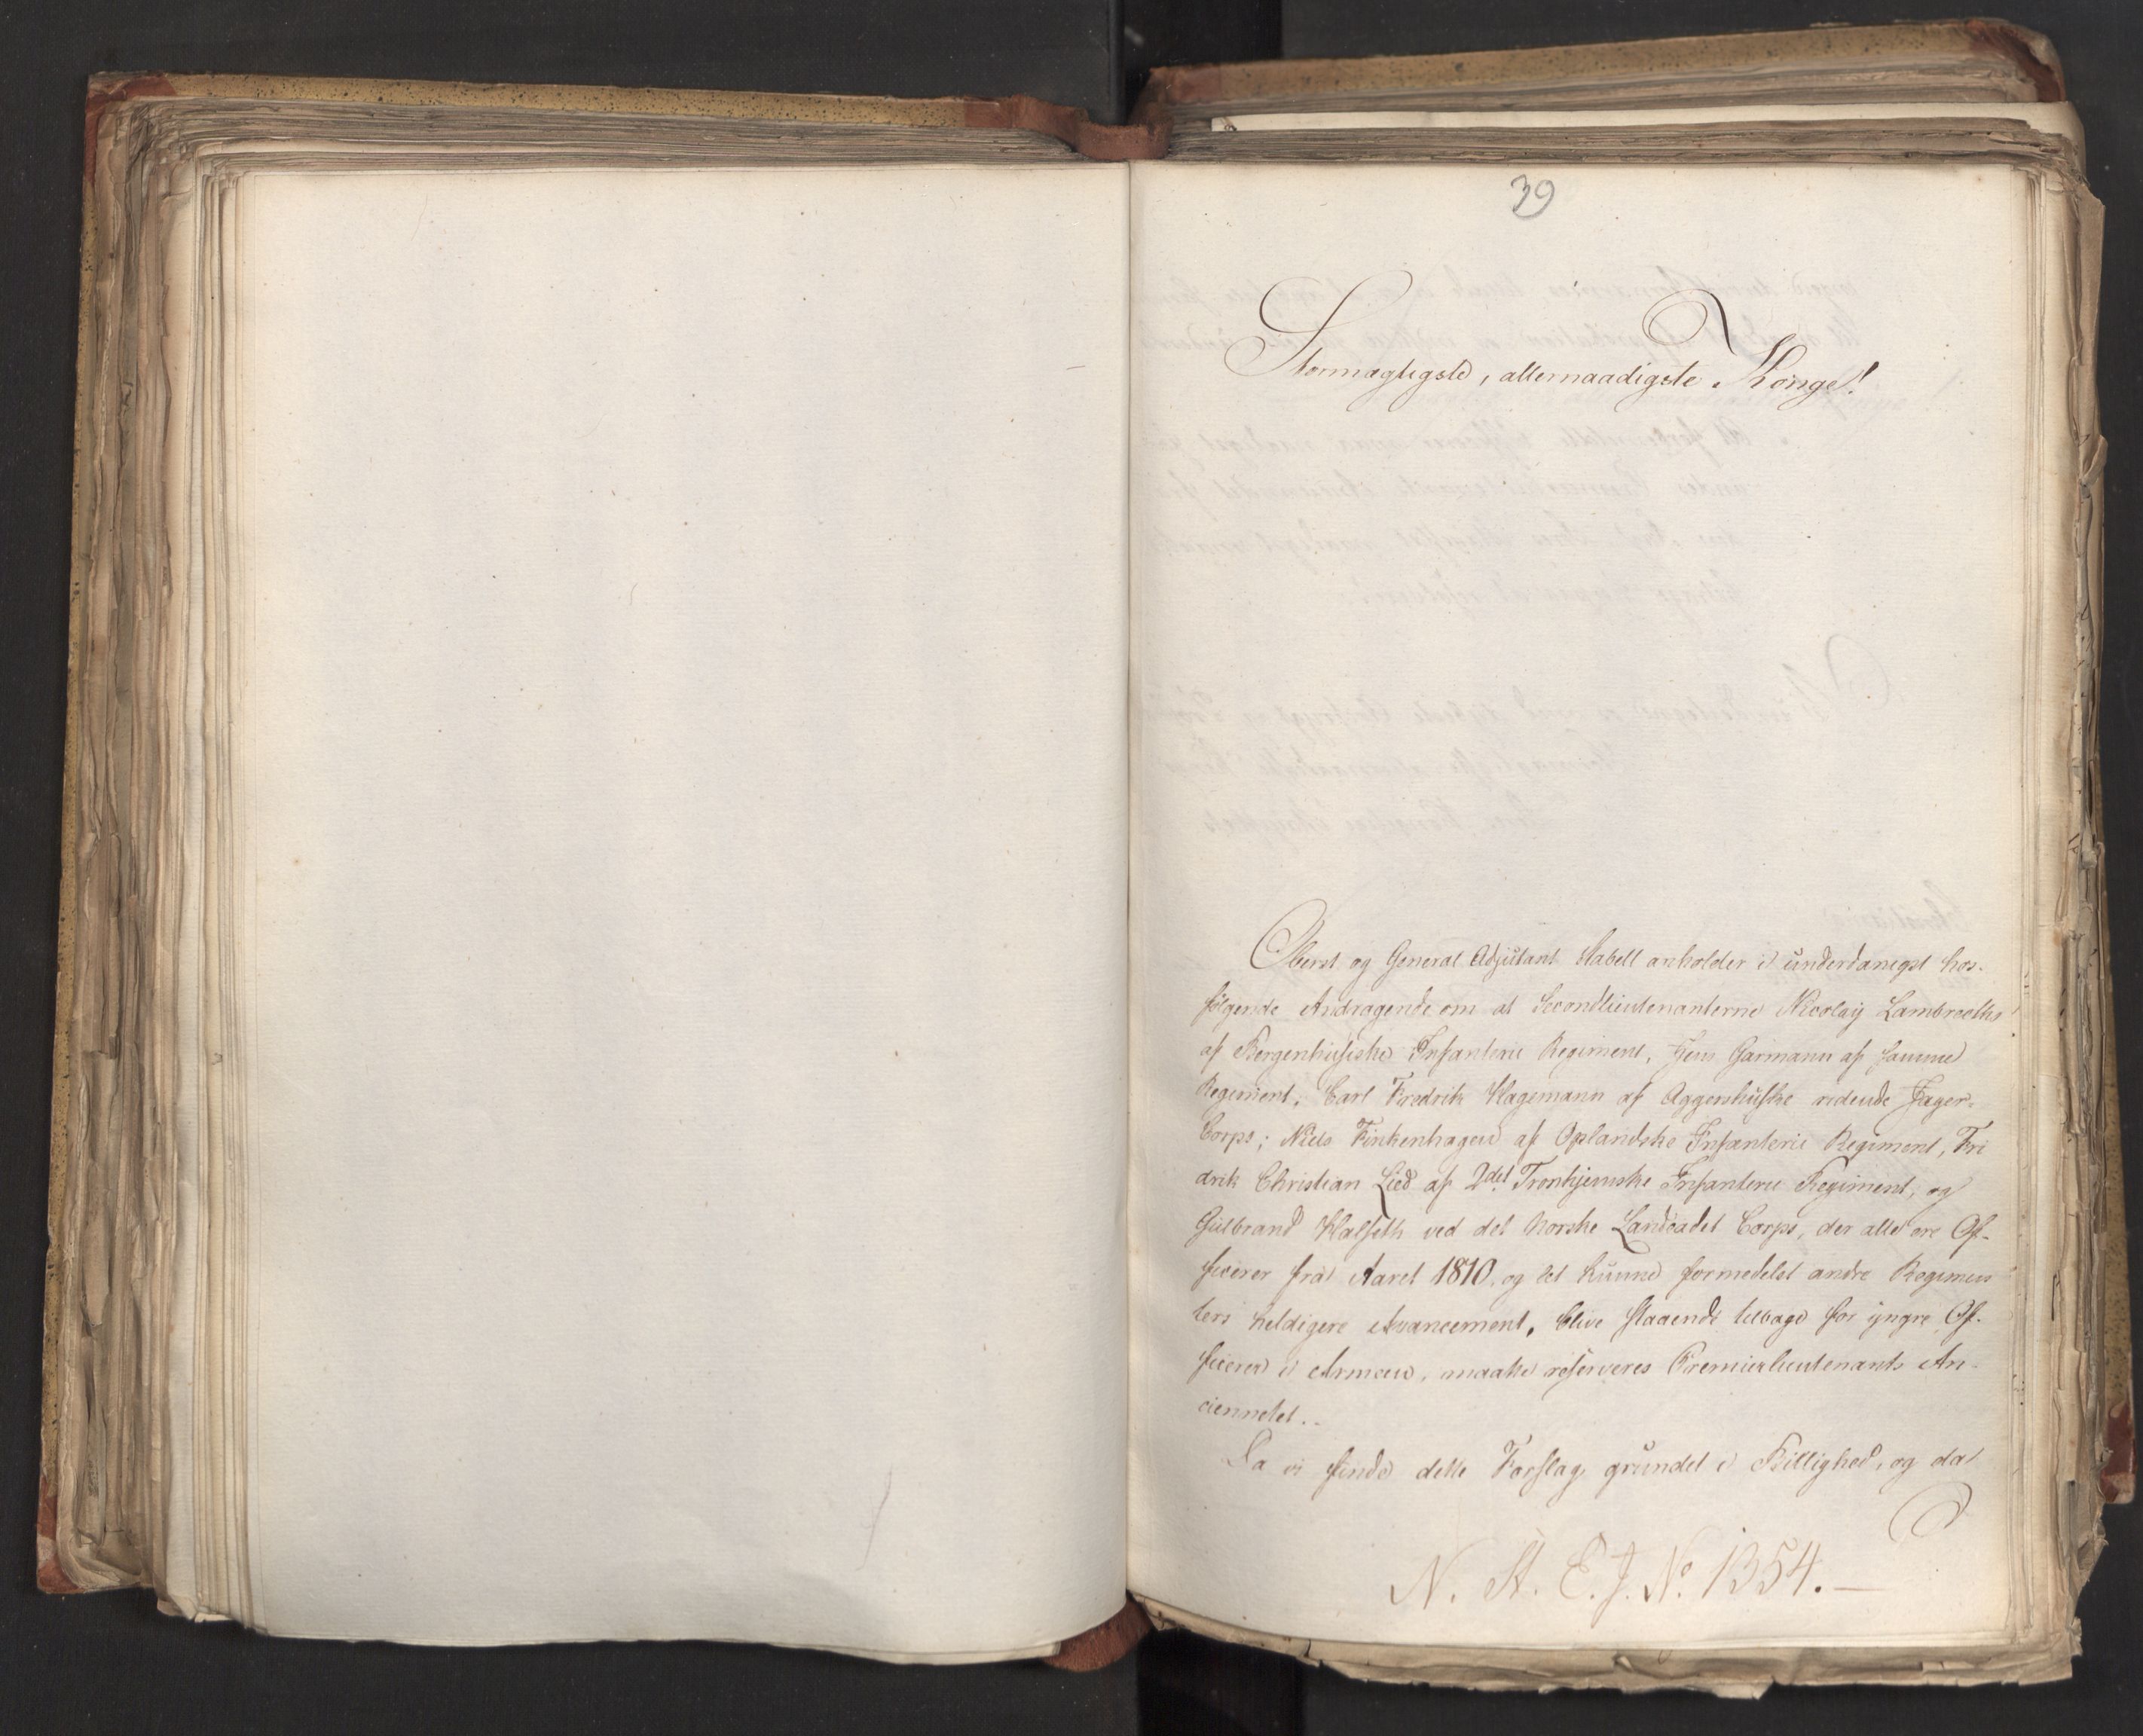 39
Stormægtigste, allernaadigste Konge!
Oberst og General Adjutant Stabell anholder i underdanigst hos-
følgende Andragende om at Secondlieutenanterne Nicolaÿ Lambrechts
af Bergenhusiske Infanterie Regiment, Jens Garmann af samme
Regiment, Carl Fredrik Hagemann af Aggershuske ridende Jæger-
Corps; Niels Finkenhagen af Oplandske Infanterie Regiment, Fri
drik Christian Lied af 2det Tronhjemske Infanterie Regiment, og
Gulbrand Halseth ved det Norske Landcadet Corps, der alle ere Of-
ficerer fra Aaret 1810, og let kunne formedelst andre Regimen
ters heldigere Avancement, blive staaende tilbage for ÿngre Of-
ficerer i Armeen, maatte reserveres Premierlieutenants An-
ciennetet.-
Da vi finde dette Forslag grundet i Billighed, og da
N. St. E. J. No. 1354.-